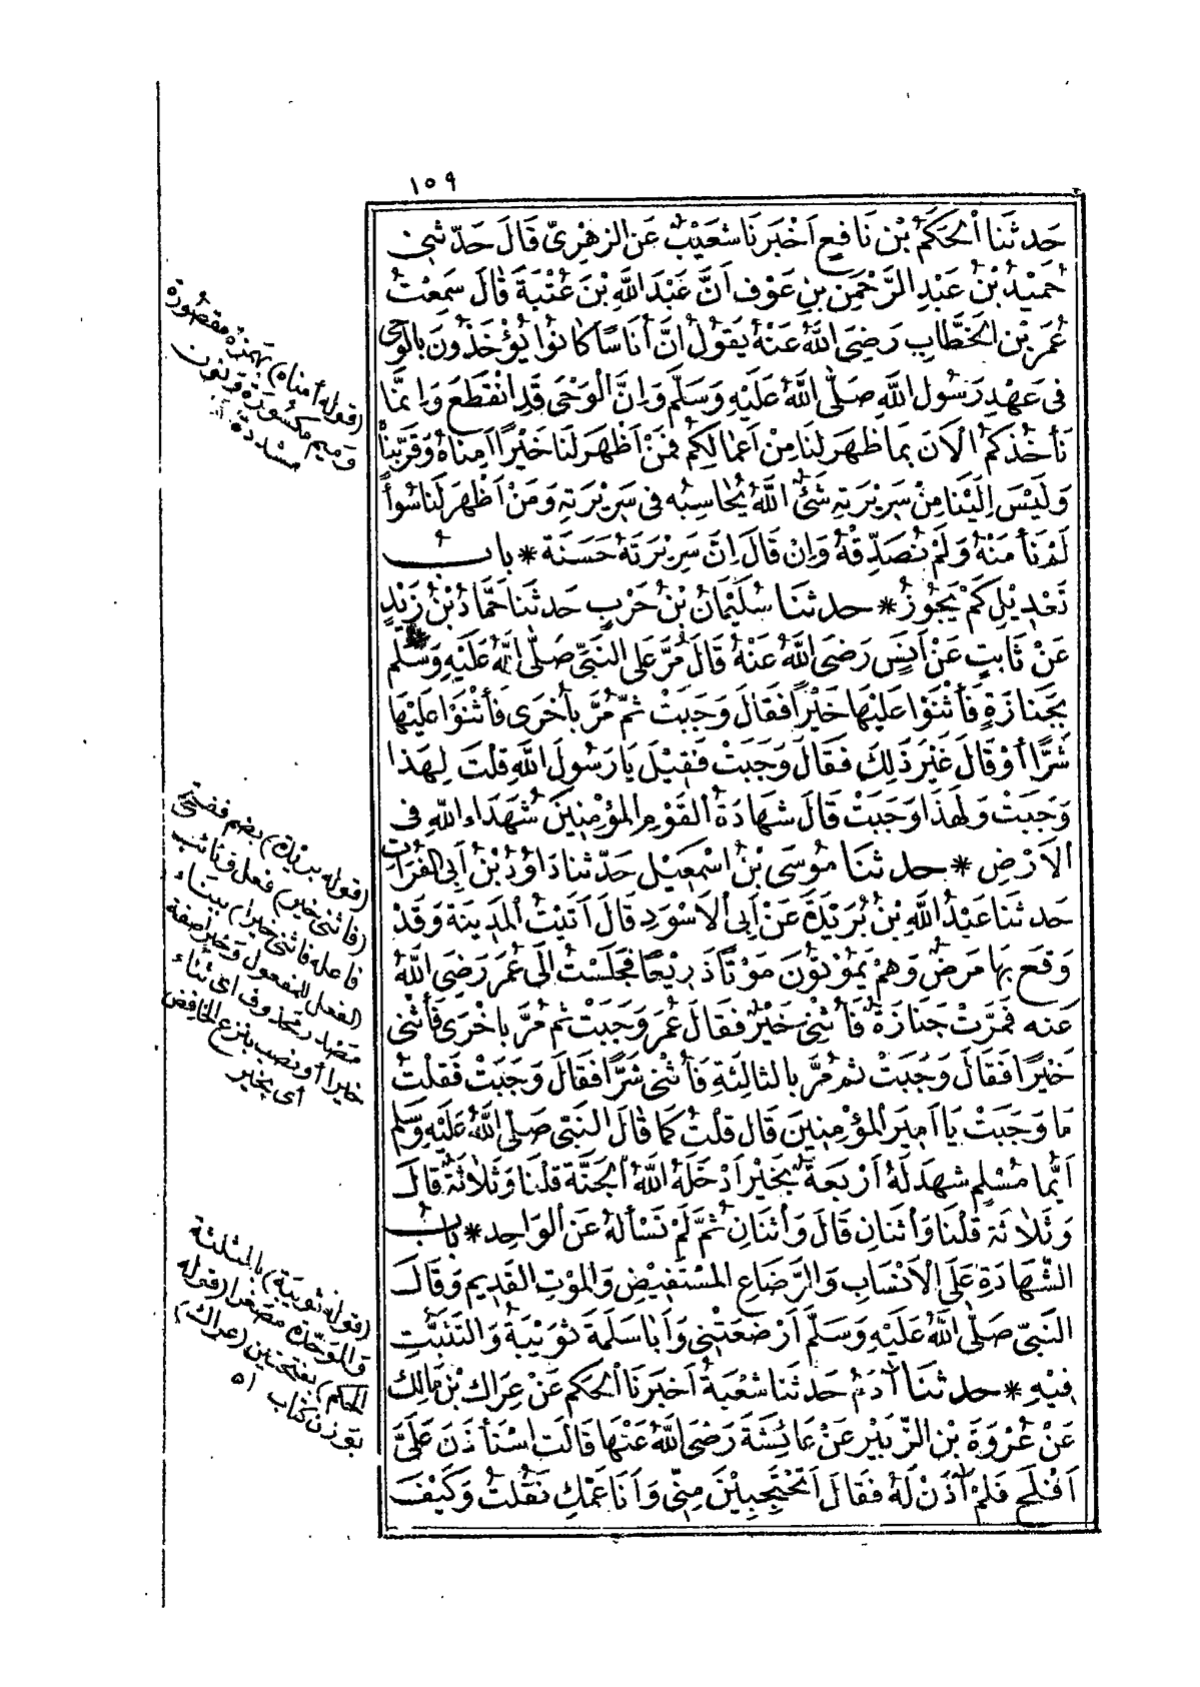 ١٥٩
حَدثَنَا اْلحَكَمُ بْن نَافِعٍ اَخْبَرنَا شعَيْبٌ عَنِ الزهْرِىِّ قَالَ حَدَّثنِى
حُمَيْدُ بْنُ عَبْدِ الرَّحْمَنِ بنِ عَوْفٍ اَنَّ عَبْدَ اللهِ بْنَ عُتْبَةَ قَالَ سَمِعْتُ
عُمَرَ بْنَ الخَطَّابِ رَضِىَ اللهُ عَنْهُ يَقُولُ اِنَّ اُنَاسًا كَانوُا يُؤْخَذُونَ بِالْوَحْىِ
فِى عَهْدِ رَسُولِ اللهِ صَلَّى اللهُ عَلَيْهِ وَسَلَّمَ وَاِنَّ الْوَحْىَ قَدِ انْقَطَعَ وَاِنمَّا
نَأخُذُكمُ الْآنَ بمَا ظَهَرَ لَنَا مِنْ اَعْمَالِكُمْ فمَنْ اَظْهَرَ لَنَا خَيْرًا اَمِنَّاهُ وَقَرَّبْنَاهُ
وَلَيْسَ اِلَيْنَا مِنْ سَرِيْرَتِهِ شَىْءٌ اللهُ يُحَاسِبُه فى سَرِيْرَتِهِ وَمَنْ اَظْهَرَ لَنَا سُوأً
لَمْ نَأمَنْهُ وَلَمْ نُصَدِّقْهُ وَاِنْ قَالَ اِنَّ سَرِيْرَتَهُ حَسَنَة * باب
تَعْدِيْلِ كَمْ يَجُوْزُ * حدثنَا سُلَيْمَانُ بْنُ حَرْبٍ حَدثنَا حَمَّادُ بْنُ زَيْدٍ
عَنْ ثَابِتٍ عَنْ اَنَسٍ رَضِىَ اللهُ عَنْهُ قَالَ مُرَّ عَلَى النَبىِّ صَلَّى اللهُ عَلَيْهِ وَسَلَّمَ
بجَنَازَةٍ فَأَثْنَوْا عَلَيْهَا خَيْرًا فَقَالَ وَجَبَتْ ثمَّ مُرَّ بأُخْرَى فَأَثْنَوْا عَلَيْهَا
شَرًّا أوْ قَالَ غَيْرَ ذَلِكَ فَقَالَ وَجَبَتْ فَقِيْلَ يَا رَسُولَ اللهِ قلْتَ لِهَذا
وَجَبَتْ وَلهَذَا وَجَبَتْ قَالَ شهَادَةُ القَوْمِ المؤْمِنِينَ شُهَدَاءُ اللهِ فى
الاَرْضِ * حدثنَا مُوسَى بْنُ اسْمَعِيْلَ حَدّثنَا دَاوُدُ بْنُ أبِى الفُرَاتِ
حَدثنَا عَبْدُ اللهِ بْنُ بُرَيْدَةَ عَنْ اَبى الاَسْوَدِ قَالَ اَتَيْتُ المَدِينَةَ وَقَدْ
وَقعَ بهَا مَرَضٌ وَهُمْ يَمُوْتُوْنَ مَوْتًا ذَرِيْعًا فجَلَسْتُ اِلَى عُمَرَ رَضِىَ اللهُ
عَنه فَمَرَّتْ جَنَازَةٌ فَأُثنِىَ خَيْرٌ فَقَالَ عُمَرُ وَجَبَتْ ثم مُرَّ بِاُخْرَى فَأُثنِىَ
خَيْرًا فَقَالَ وَجَبَتْ ثمّ مُرَّ بِالثالِثَةِ فَأُثنِىَ شَرًّا فَقَالَ وَجَبَتْ فَقلْتُ
مَا وَجَبَتْ يَا اَمِيرَ المؤْمِنِينَ قَالَ قلْتُ كمَا قَالَ النَبىّ صَلّى اللهُ عَلَيْهِ وَسَلّم
اَيُّمَا مُسْلِمٍ شهَدَ لَهُ اَرْبَعَةٌ بِخَيْرٍ اَدْخَلَهُ اللهُ الجَنَّةَ قلْنَا وَثَلَاثَةٌ قَالَ
وَثَلَاثَة قلْنَا وَاثنَانِ قَالَ وَاثنَانِ ثمَّ لَمْ نَسْأَلهُ عَنِ الوَاحِدِ * بَاب
الشّهَادَةِ عَلَى الاَنْسَابِ وَالرَّضَاعِ المسْتَفِيْضِ وَالمَوْتِ القَدِيمِ وَقَالَ
النَبىّ صَلَّى اللهُ عَلَيْهِ وَسَلَّمَ اَرْضَعَتْنِى وَاَبَا سَلَمَةَ ثوَيْبَةُ وَالتَثبّتِ
فِيْهِ * حدثنَا آدَمُ حَدثنَا شعْبَةُ اَخبَرنَا الحَكَم عَنْ عِرَاكِ بْنِ مَالِك
عَنْ عُرْوَةَ بْنِ الزّبَيْرِ عَنْ عَائِشَةَ رَضِىَ اللهُ عَنْهَا قَالَتْ اسْتَأذَنَ عَلَىَّ
اَفْلَح فَلَمْ آذَنْ لَهُ فَقَالَ اَتحْتَجِبِيْنَ مِنِّى وَاَنَا عَمّكِ فَقُلتُ وَكَيْفَ
(قوله أمناه) بهمزة مقصُورة
وَميم مكسُورَة ونون
مشددة اه
(قوله بريدة) بضم ففتح
(فأثنى خير) فعل ونائب
فاعله فأثنى خيرا) ببناء
الفعل للمفعول وَخيرا صفة
مصدر محذوف اى ثناء
خيرا أو نصب بنزع الخافض
أى بخير
(قوله ثويبة) بالمثلثة
وَالموَحّدة مصَغرا (قوله
الحكم) بفتحتين (عراك)
بوَزن كتاب اه